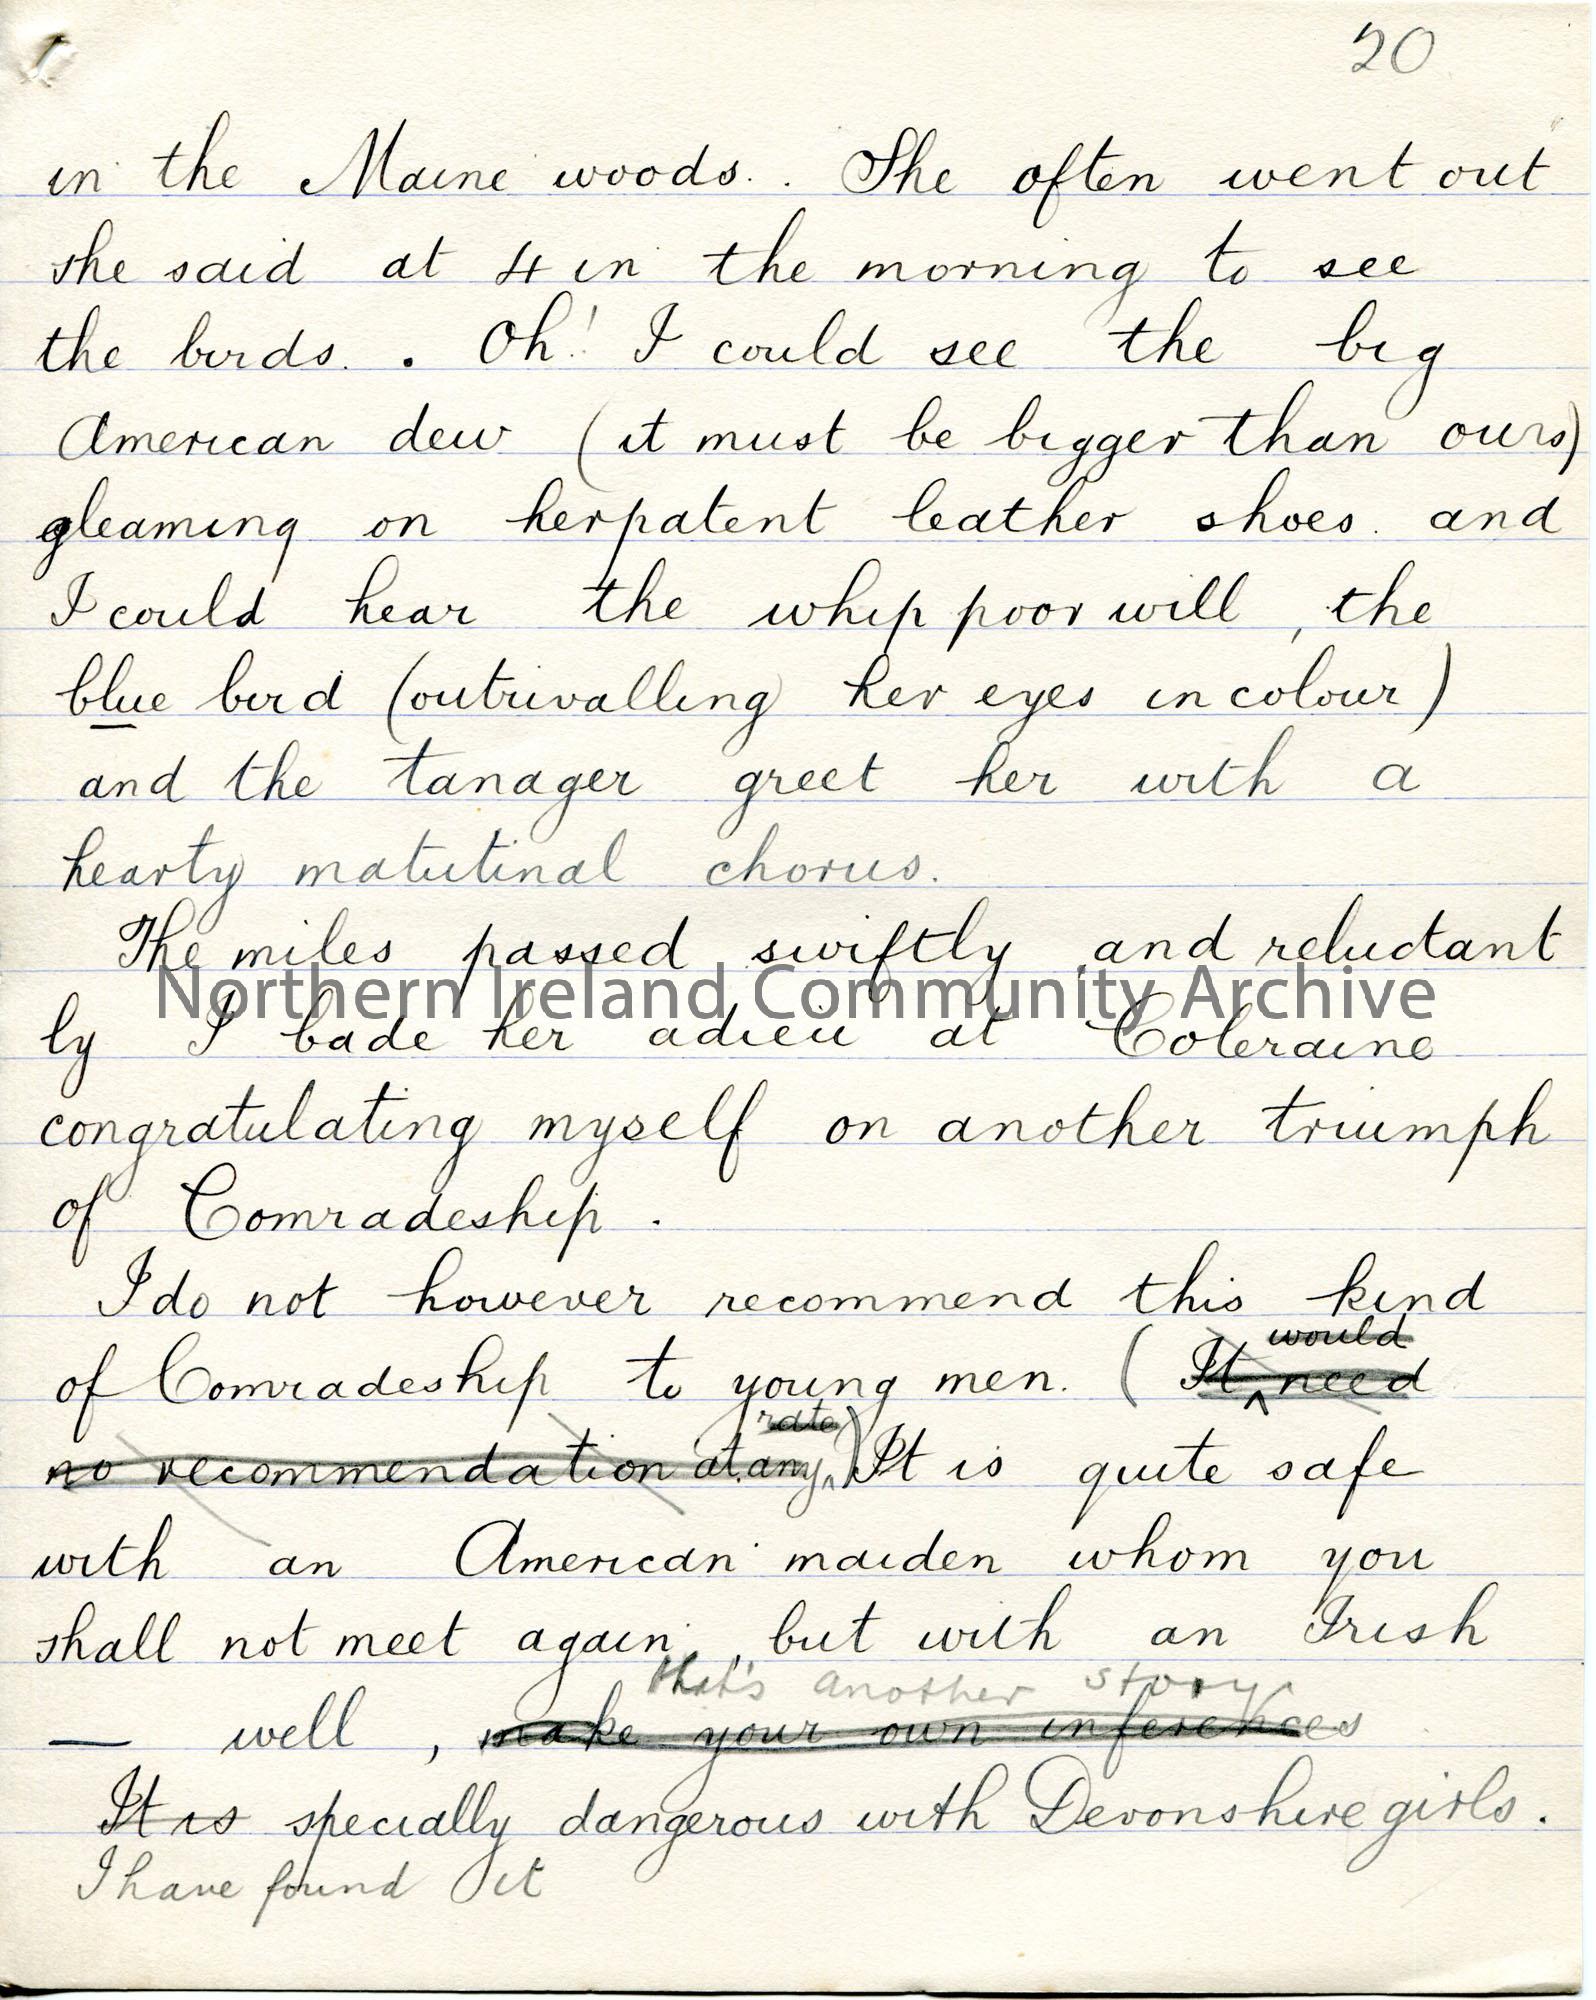 20
in the Maine woods. . She often went out
she said at 4 in the morning to see
the birds. . Oh! I could see the big
American dew (it must be bigger than ours)
gleaming on her patent leather shoes and
I could hear the whip poor will, the
blue bird (outrivalling her eyes in colour)
and the tanager greet her with a
hearty matutinal chorus.
The miles passed swiftly and reluctant
Northern Ireland Community Archive
ly I bade her adieu at Coleraine
congratulating myself on another triumph
of Comradeship.
I do not however recommend this kind
would
of Comradeship to young men. ( It ^ need
rate
no recommendation at any ^ ) It is quite safe
with an American maiden whom you
shall not meet again, but with an Irish
that's another story
— well, make your own inferences
It is specially dangerous with Devonshire girls.
I have found it